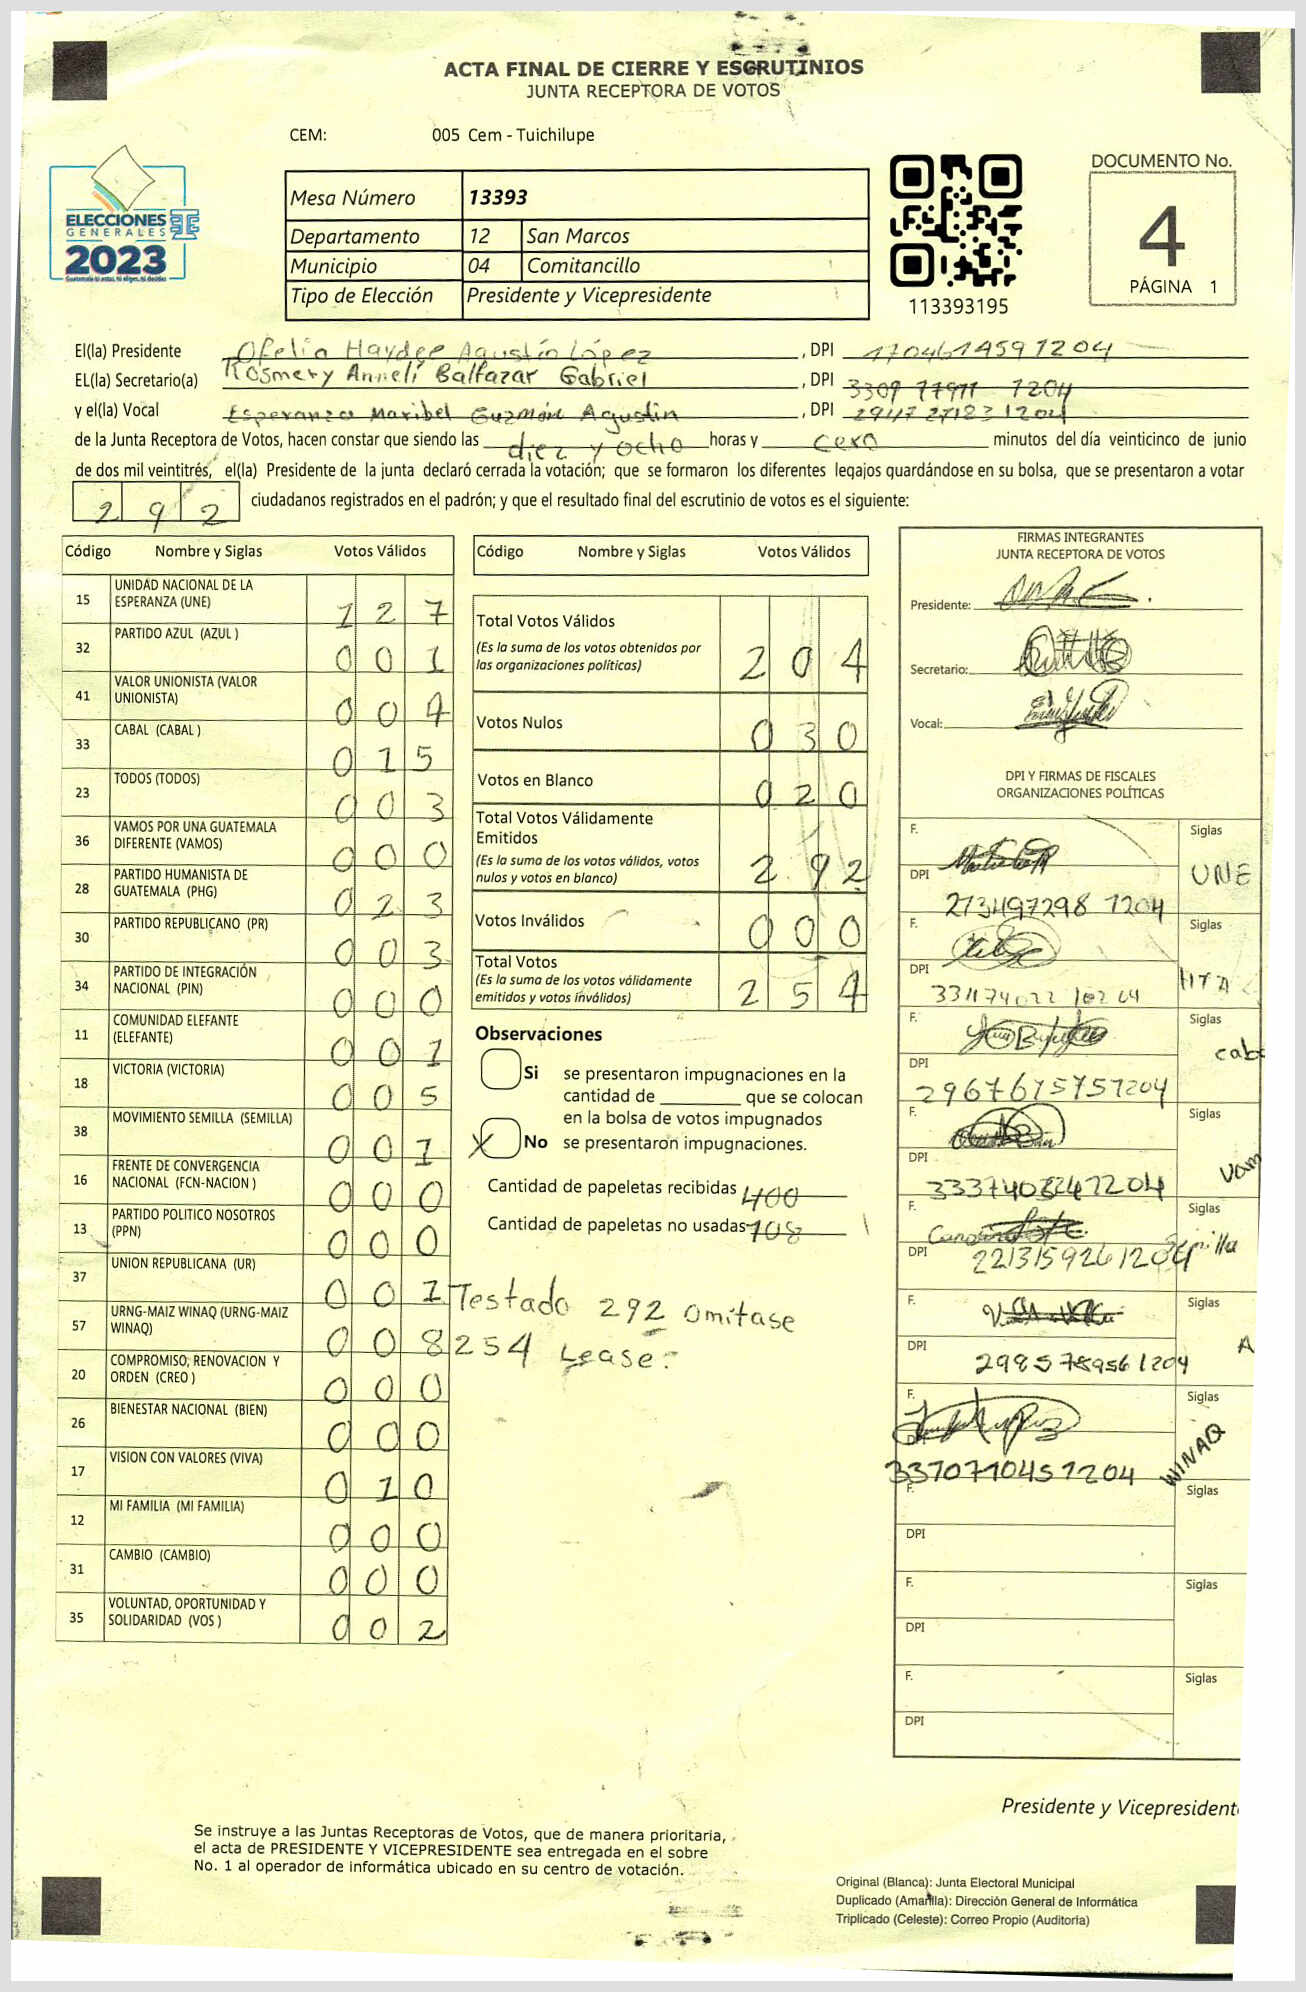 ACTA FINAL DE CIERRE Y ESCRUTINIOS
JUNTA RECEPTORA DE VOTOS
CEM: 005 Cem - Tuichilupe
ELECCIONES
GENERALES
2023
Mesa Número 13393
Departamento 12 San Marcos
Municipio 04 Comitancillo
Tipo de Elección Presidente y Vicepresidente
113393195
DOCUMENTO No.
4
PÁGINA 1
El(la) Presidente Ofelia Haydee Agustín López, DPI 1704614591204
EL(la) Secretario(a) Rosmery Annelí Baltazar Gabriel, DPI 3309 77911 1204
y el(la) Vocal Esperanza Maribel Guzmán Agustin, DPI 2947 27823 1204
de la Junta Receptora de Votos, hacen constar que siendo las diez y ocho horas y cero minutos del día veinticinco de junio
de dos mil veintitrés, el(la) Presidente de la junta declaró cerrada la votación; que se formaron los diferentes legajos quardándose en su bolsa, que se presentaron a votar
292 ciudadanos registrados en el padrón; y que el resultado final del escrutinio de votos es el siguiente:
Código Nombre y Siglas Votos Válidos
15 UNIDAD NACIONAL DE LA ESPERANZA (UNE) 1 2 7
32 PARTIDO AZUL (AZUL ) 0 0 1
41 VALOR UNIONISTA (VALOR UNIONISTA) 0 0 4
33 CABAL (CABAL ) 0 1 5
23 TODOS (TODOS) 0 0 3
36 VAMOS POR UNA GUATEMALA DIFERENTE (VAMOS) 0 0 0
28 PARTIDO HUMANISTA DE GUATEMALA (PHG) 0 2 3
30 PARTIDO REPUBLICANO (PR) 0 0 3
34 PARTIDO DE INTEGRACIÓN NACIONAL (PIN) 0 0 0
11 COMUNIDAD ELEFANTE (ELEFANTE) 0 0 1
18 VICTORIA (VICTORIA) 0 0 5
38 MOVIMIENTO SEMILLA (SEMILLA) 0 0 1
16 FRENTE DE CONVERGENCIA NACIONAL (FCN-NACION ) 0 0 0
13 PARTIDO POLITICO NOSOTROS (PPN) 0 0 0
37 UNION REPUBLICANA (UR) 0 0 1
57 URNG-MAIZ WINAQ (URNG-MAIZ WINAQ) 0 0 8
20 COMPROMISO, RENOVACION Y ORDEN (CREO ) 0 0 0
26 BIENESTAR NACIONAL (BIEN) 0 0 0
17 VISION CON VALORES (VIVA) 0 1 0
12 MI FAMILIA (MI FAMILIA) 0 0 0
31 CAMBIO (CAMBIO) 0 0 0
35 VOLUNTAD, OPORTUNIDAD Y SOLIDARIDAD (VOS ) 0 0 2
Código Nombre y Siglas Votos Válidos
Total Votos Válidos 2 0 4
(Es la suma de los votos obtenidos por
las organizaciones políticas)
Votos Nulos 0 3 0
Votos en Blanco 0 2 0
Total Votos Válidamente
Emitidos 2 9 2
(Es la suma de los votos válidos, votos
nulos y votos en blanco)
Votos Inválidos 0 0 0
Total Votos 2 5 4
(Es la suma de los votos válidamente
emitidos y votos inválidos)
Observaciones
Si se presentaron impugnaciones en la
cantidad de ________ que se colocan
en la bolsa de votos impugnados
X No se presentaron impugnaciones.
Cantidad de papeletas recibidas 400
Cantidad de papeletas no usadas 108
Testado 292 omitase
254 Lease:
FIRMAS INTEGRANTES
JUNTA RECEPTORA DE VOTOS
Presidente:
Secretario:
Vocal:
DPI Y FIRMAS DE FISCALES
ORGANIZACIONES POLÍTICAS
F. Siglas
DPI UNE
2131497298 1204
F. Siglas
DPI
F. Siglas
DPI
2967615751204
F. Siglas
DPI Vam
F. Siglas
DPI 2213159261204
F. Siglas
DPI A
2985789561204
F. Siglas
WINAQ
3370710451204
F. Siglas
DPI
F. Siglas
DPI
F. Siglas
DPI
Presidente y Vicepresident
Se instruye a las Juntas Receptoras de Votos, que de manera prioritaria,
el acta de PRESIDENTE Y VICEPRESIDENTE sea entregada en el sobre
No. 1 al operador de informática ubicado en su centro de votación.
Original (Blanca): Junta Electoral Municipal
Duplicado (Amarilla): Dirección General de Informática
Triplicado (Celeste): Correo Propio (Auditoría)